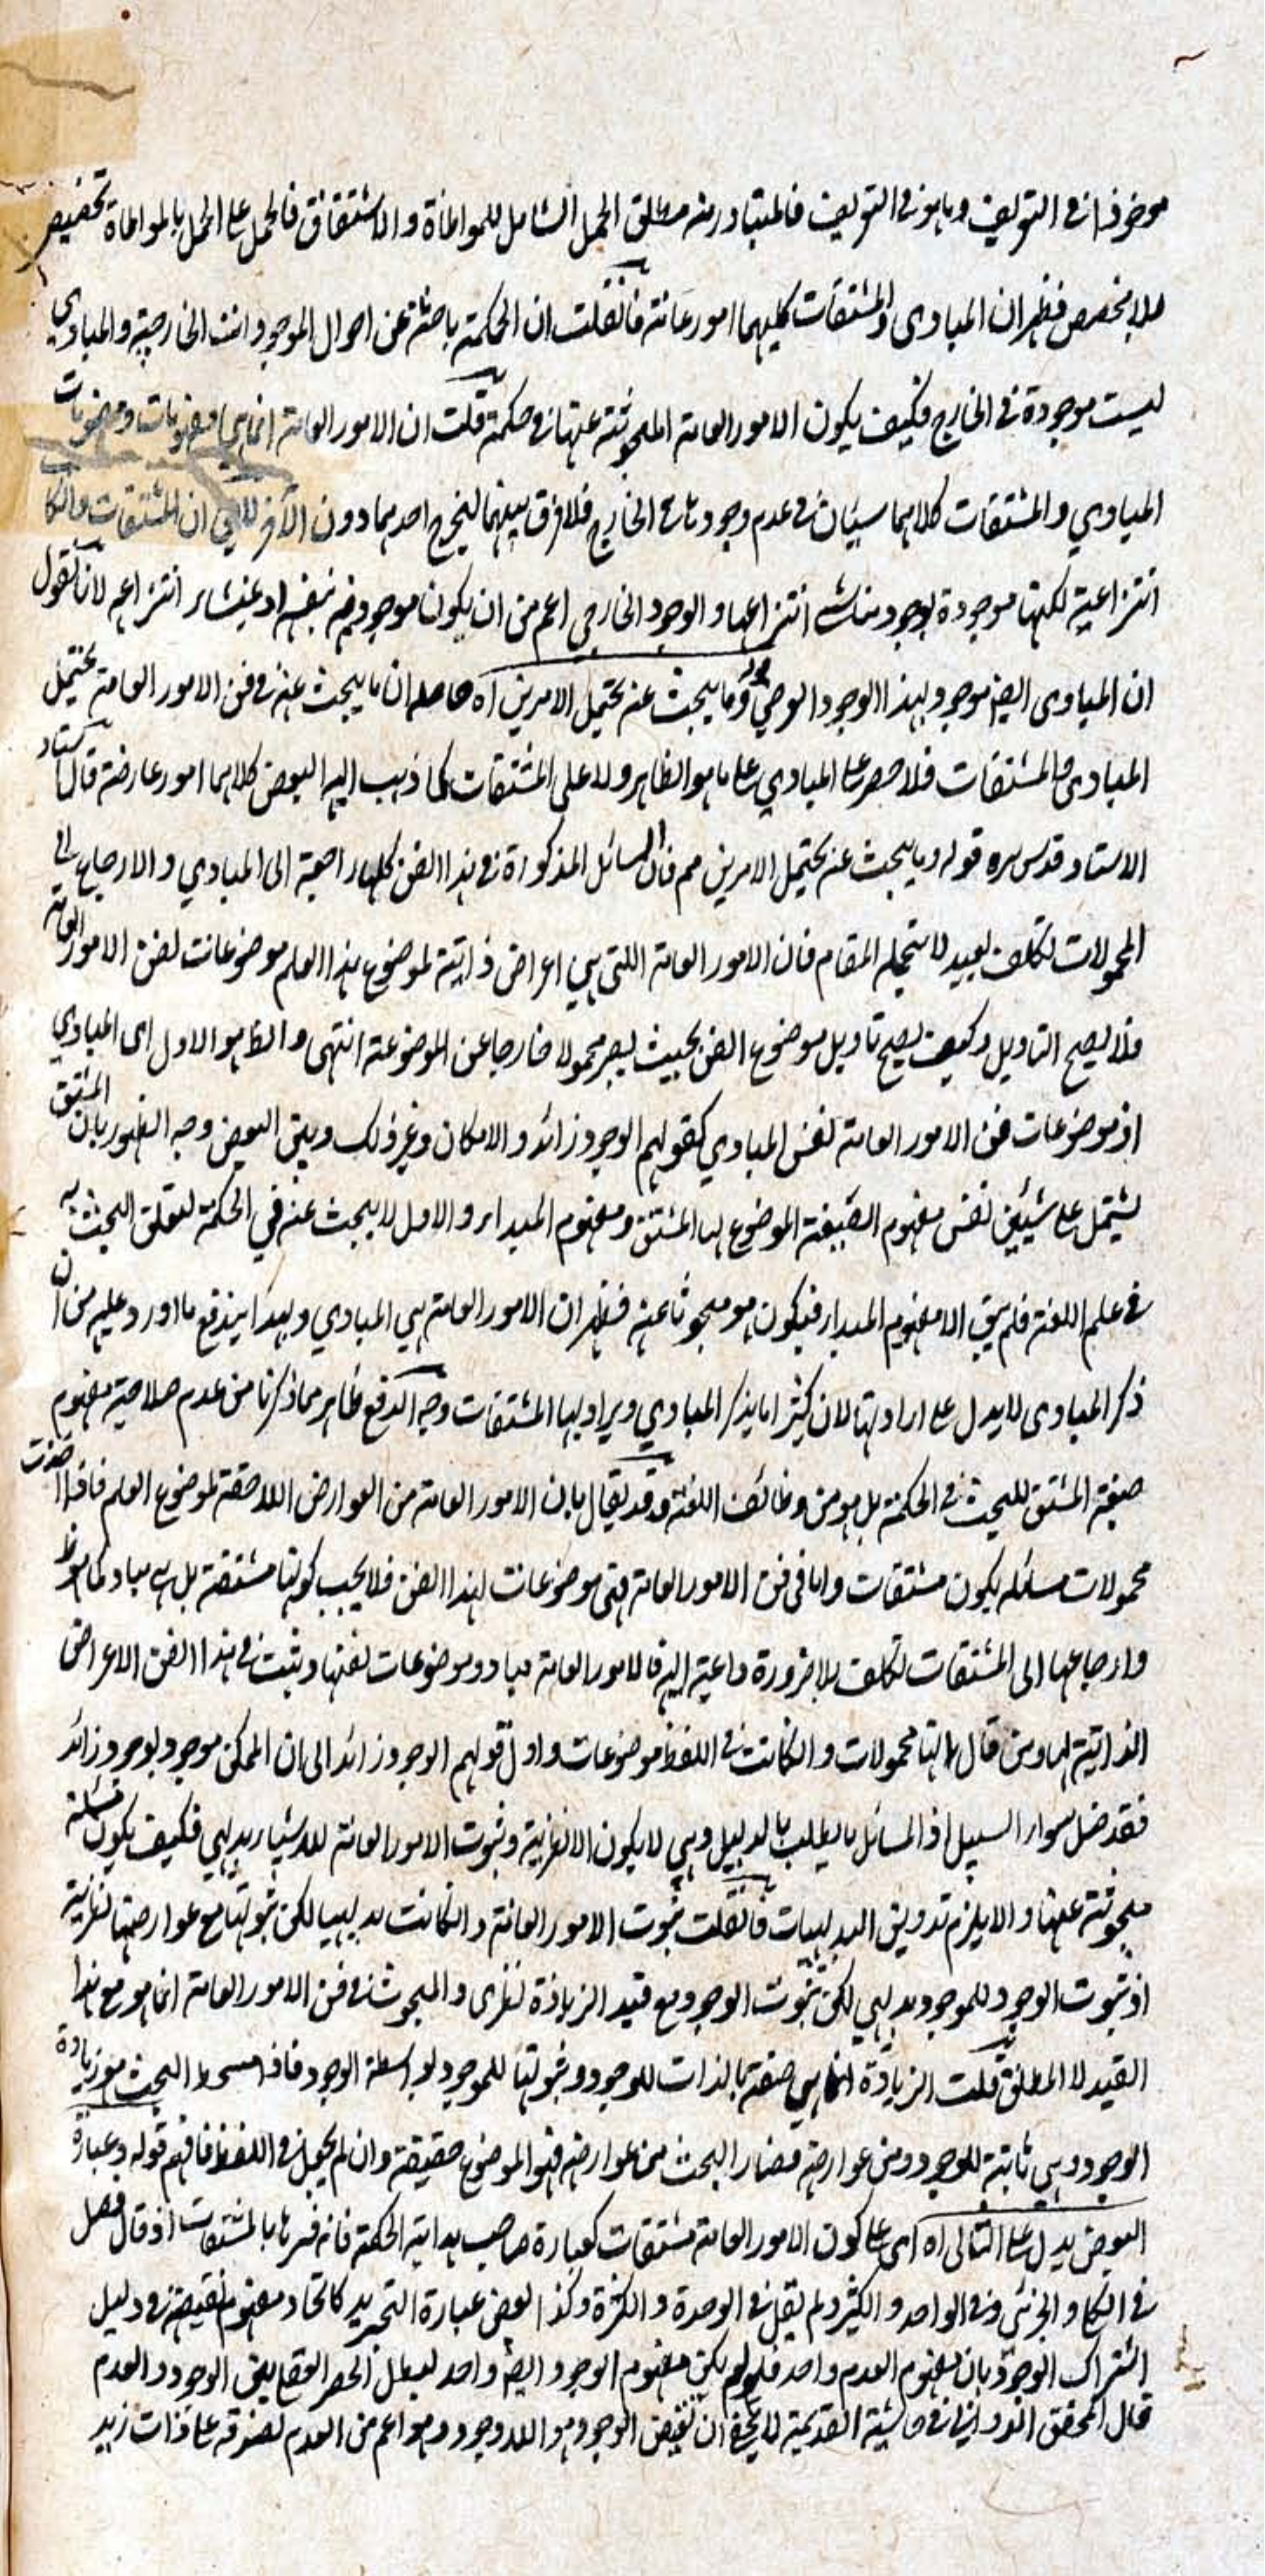 موخوذا في التعريف وما هو في التعريف فالمتبادر منه مطلق الحمل الشامل للمواطاة والاشتقاق فالحمل على الحمل بالمواطاة تخصيص
بلا مخصص فظهر ان المبادي والمشتقات كليهما امور عامة فانقلت ان الحكمة باحثة عن احوال الموجودات الخارجية والمبادي
ليست موجودة في الخارج فكيف يكون الامور العامة المبحوثة عنها في حكمة قلت ان الامور العامة انما هي مفهومات ومفهومات
المبادي والمشتقات كلاهما سيان في عدم وجودها في الخارج فلا فرق بينهما ليخرج احدهما دون الآخر ان المشتقات وان كا
انتزاعية لكنها موجودة بوجود مناشي انتزاعها والوجود الخارجي اعم من ان يكون موجودا بنفسه او بمنشاء انتزاعه لانا نقول
ان المبادي ايضا موجود بهذا الوجود قوله وما يبحث عنه يحتمل الامرين اه حاصله ان ما يبحث عنه في فن الامور العامة يحتمل
المبادي والمشتقات فلا حصر على المبادي على ما هو الظاهر ولا على المشتقات كما ذهب اليه البعض كلاهما امور عارضة قال استاد
الاستاد قدس سره قوله وما يبحث عنه يحتمل الامرين مم فان المسائل المذكورة في هذا الفن كلها راجعة الى المبادي والارجاع الى
المحمولات تكلف بعيد لا يتحمله المقام فان الامور العامة اللتي هي اعراض ذاتية لموضوع هذا العلم موضوعات لفن الامور العامة
فلا يصح التاويل وكيف يصح تاويل موضوع الفن بحيث يصير محمولا خارجا عن الموضوعة انتهى والظاهر هو الاول اى المبادي
اذ موضوعات فن الامور العامة نفس المبادي كقولهم الوجود زائد والامكان وغير ذلك وبين البعض وجه الظهور بان المشتق
يشتمل على شيئين نفس مفهوم الصيغة الموضوع لها المشتق ومفهوم المبداء والاول لا يبحث عنه في الحكمة لتعلق البحث به
في علم اللغة فلم يبق الا مفهوم المبداء فيكون هو مبحوثا عنه فظهر ان الامور العامة هي المبادي وبهذا يندفع ما اورد عليه من ان
ذكر المبادي لا يدل على ارادتها لان كثيرا ما يذكر المبادي ويراد بها المشتقات وجه الدفع ظاهر مما ذكرنا من عدم صلاحية مفهوم
صيغة المشتق للبحث في الحكمة بل هو من وظائف اللغة وقد يقال بان الامور العامة من العوارض اللاحقة لموضوع العلم فاذا اخذت
محمولات مسائله يكون مشتقات واما في فن الامور العامة فهي موضوعات لهذا الفن فلا يجب كونها مشتقة بل هي مباد كما هو الظ
وارجاعها الى المشتقات تكلف بلا ضرورة داعية اليه فالامور العامة مباد وموضوعات لفنها ويثبت في هذا الفن الاعراض
الذاتية لها ومن قال انها محمولات وان كانت في اللفظ موضوعات واول قولهم الوجود زائد الى ان الممكن موجود بوجود زائد
فقد ضل سواء السبيل اذ المسائل ما يطلب بالدليل وهي لا يكون الا نظرية وثبوت الامور العامة للاشياء بديهي فكيف يكون مسئلة
مبحوثة عنها والا يلزم تدوين البديهيات فانقلت ثبوت الامور العامة وان كانت بديهيا لكن ثبوتها مع عوارضها نظرية
اذ ثبوت الوجود للموجود بديهي لكن ثبوت الوجود مع قيد الزيادة نظرى والمبحوث في فن الامور العامة انما هو مع هذا
القيد لا المطلق قلت الزيادة انما هي صفة بالذات للوجود وثبوتها للموجود بواسطة الوجود فاذا محط البحث هو زيادة
الوجود وهي ثابتة للوجود ومن عوارضه فصار البحث من عوارضه فهو الموضوع حقيقة وان لم يجعل في اللفظ فافهم قوله وعبارة
البعض يدل على الثاني اه اى على كون الامور العامة مشتقات كعبارة صاحب هداية الحكمة فانه فسرها بالمشتقات اذ قال فصل
في الكلي والجزئى وفي الواحد والكثير ولم يقل في الوحدة والكثرة وكذا بعض عبارة التجريد كاتحاد مفهوم نقيضه في دليل
اشتراك الوجود بان مفهوم العدم واحد فلو لم يكن مفهوم الوجود ايضا واحد لبطل الحصر العقلى بين الوجود والعدم
قال المحقق الدواني في حاشية القديمة لا يخفى ان نقيض الوجود هو اللاوجود وهو اعم من العدم لصدقه على ذات زيد